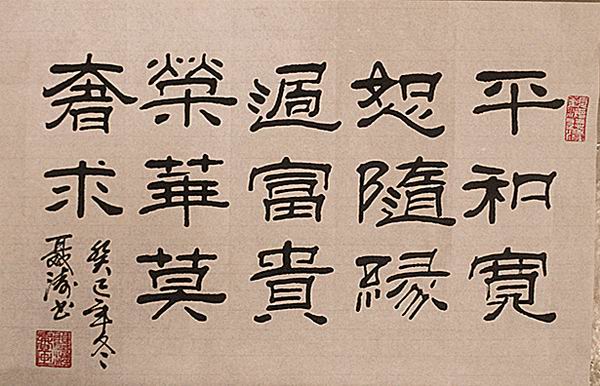 平和寬
恕隨緣
過富貴
榮華莫
奢求
癸巳年冬
聂涛书